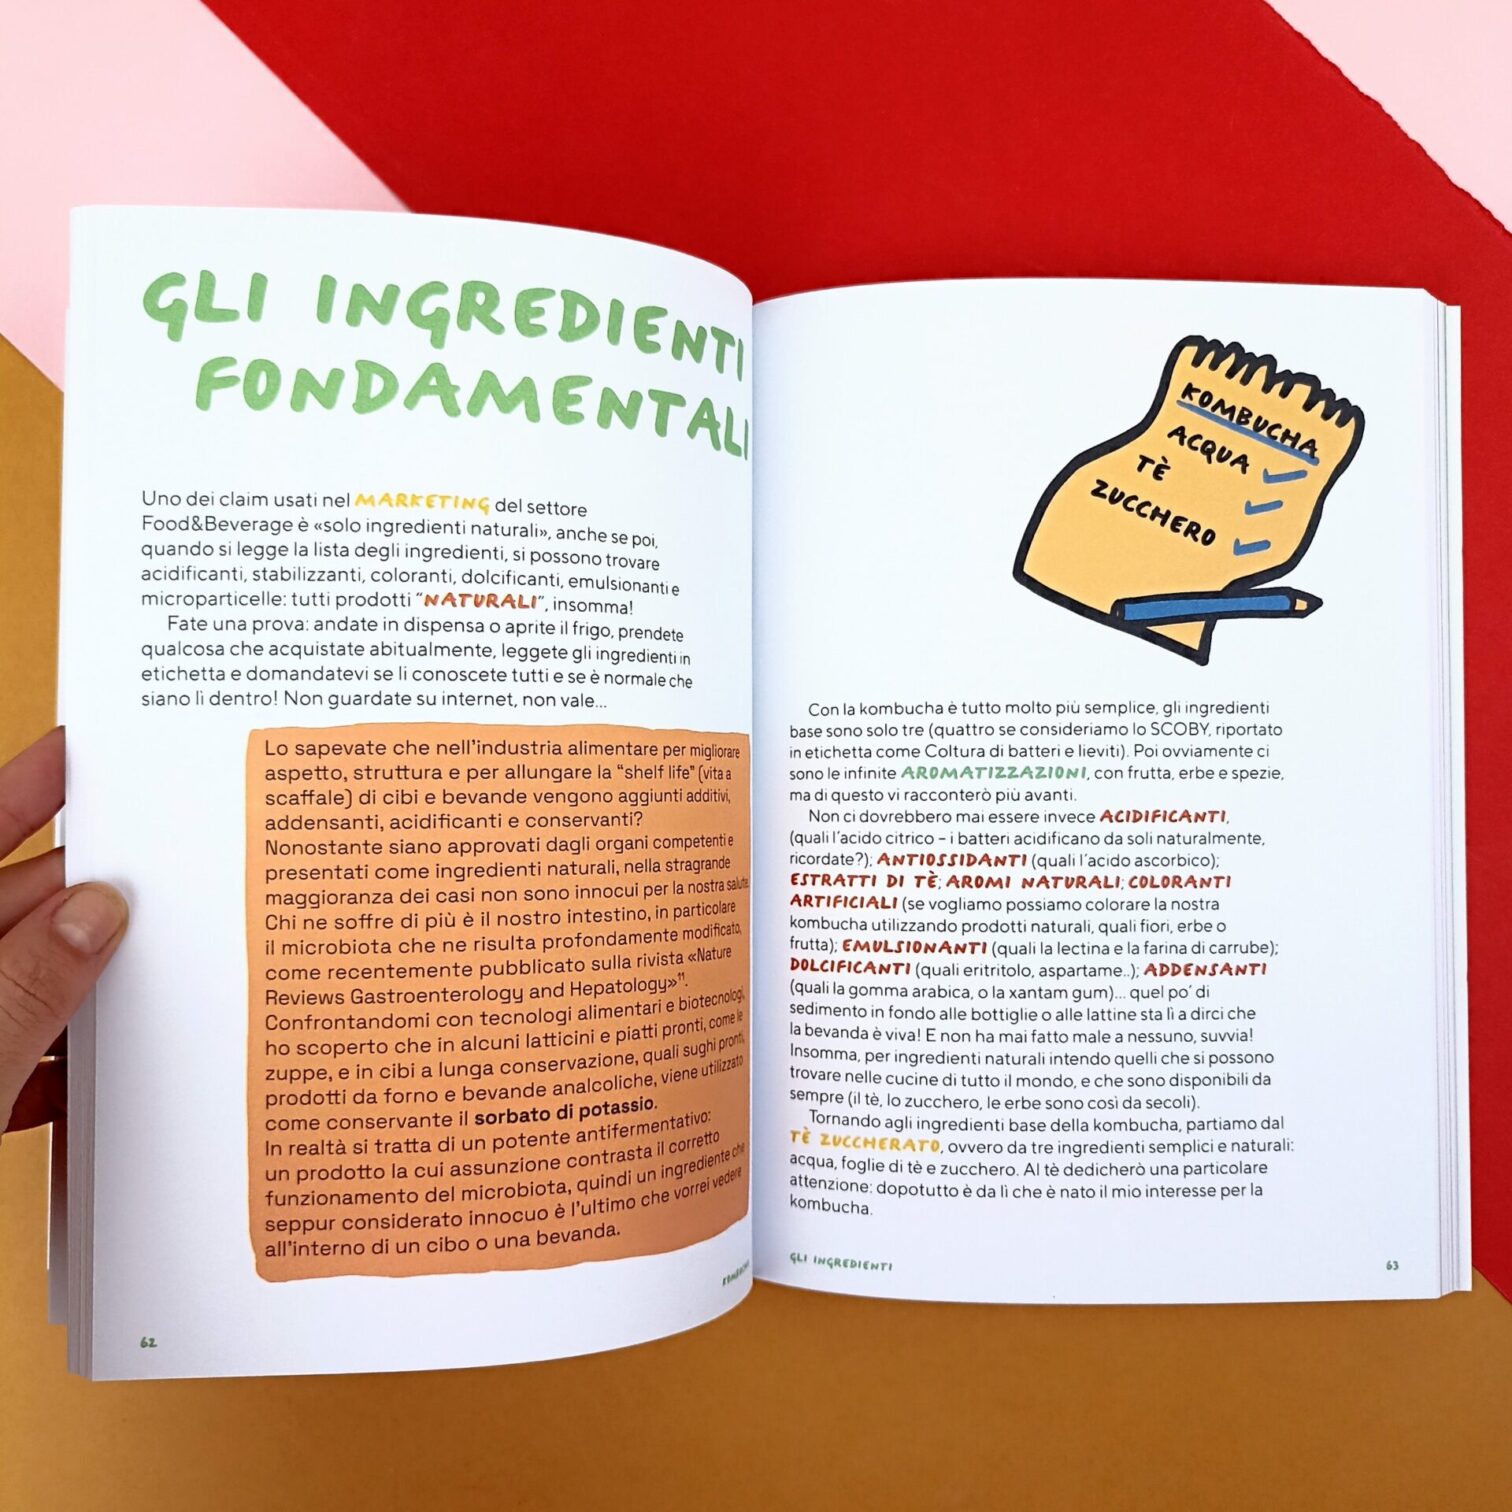 GLI INGREDIENTI
FONDAMENTALI
Uno dei claim usati nel MARKETING del settore
Food&Beverage è «solo ingredienti naturali», anche se poi,
quando si legge la lista degli ingredienti, si possono trovare
acidificanti, stabilizzanti, coloranti, dolcificanti, emulsionanti e
microparticelle: tutti prodotti “NATURALI”, insomma!
Fate una prova: andate in dispensa o aprite il frigo, prendete
qualcosa che acquistate abitualmente, leggete gli ingredienti in
etichetta e domandatevi se li conoscete tutti e se è normale che
siano lì dentro! Non guardate su internet, non vale...
Lo sapevate che nell'industria alimentare per migliorare
aspetto, struttura e per allungare la “shelf life” (vita a
scaffale) di cibi e bevande vengono aggiunti additivi,
addensanti, acidificanti e conservanti?
Nonostante siano approvati dagli organi competenti e
presentati come ingredienti naturali, nella stragrande
maggioranza dei casi non sono innocui per la nostra salute.
Chi ne soffre di più è il nostro intestino, in particolare
il microbiota che ne risulta profondamente modificato,
come recentemente pubblicato sulla rivista «Nature
Reviews Gastroenterology and Hepatology»¹¹.
Confrontandomi con tecnologi alimentari e biotecnologi,
ho scoperto che in alcuni latticini e piatti pronti, come le
zuppe, e in cibi a lunga conservazione, quali sughi pronti,
prodotti da forno e bevande analcoliche, viene utilizzato
come conservante il sorbato di potassio.
In realtà si tratta di un potente antifermentativo:
un prodotto la cui assunzione contrasta il corretto
funzionamento del microbiota, quindi un ingrediente che
seppur considerato innocuo è l'ultimo che vorrei vedere
all'interno di un cibo o una bevanda.
62
KOMBUCHA
ACQUA
TÈ
ZUCCHERO
Con la kombucha è tutto molto più semplice, gli ingredienti
base sono solo tre (quattro se consideriamo lo SCOBY, riportato
in etichetta come Coltura di batteri e lieviti). Poi ovviamente ci
sono le infinite AROMATIZZAZIONI, con frutta, erbe e spezie,
ma di questo vi racconterò più avanti.
Non ci dovrebbero mai essere invece ACIDIFICANTI,
(quali l'acido citrico – i batteri acidificano da soli naturalmente,
ricordate?); ANTIOSSIDANTI (quali l'acido ascorbico);
ESTRATTI DI TÈ; AROMI NATURALI; COLORANTI
ARTIFICIALI (se vogliamo possiamo colorare la nostra
kombucha utilizzando prodotti naturali, quali fiori, erbe o
frutta); EMULSIONANTI (quali la lectina e la farina di carrube);
DOLCIFICANTI (quali eritritolo, aspartame..); ADDENSANTI
(quali la gomma arabica, o la xantam gum)... quel po' di
sedimento in fondo alle bottiglie o alle lattine sta lì a dirci che
la bevanda è viva! E non ha mai fatto male a nessuno, suvvia!
Insomma, per ingredienti naturali intendo quelli che si possono
trovare nelle cucine di tutto il mondo, e che sono disponibili da
sempre (il tè, lo zucchero, le erbe sono così da secoli).
Tornando agli ingredienti base della kombucha, partiamo dal
TÈ ZUCCHERATO, ovvero da tre ingredienti semplici e naturali:
acqua, foglie di tè e zucchero. Al tè dedicherò una particolare
attenzione: dopotutto è da lì che è nato il mio interesse per la
kombucha.
GLI INGREDIENTI
63